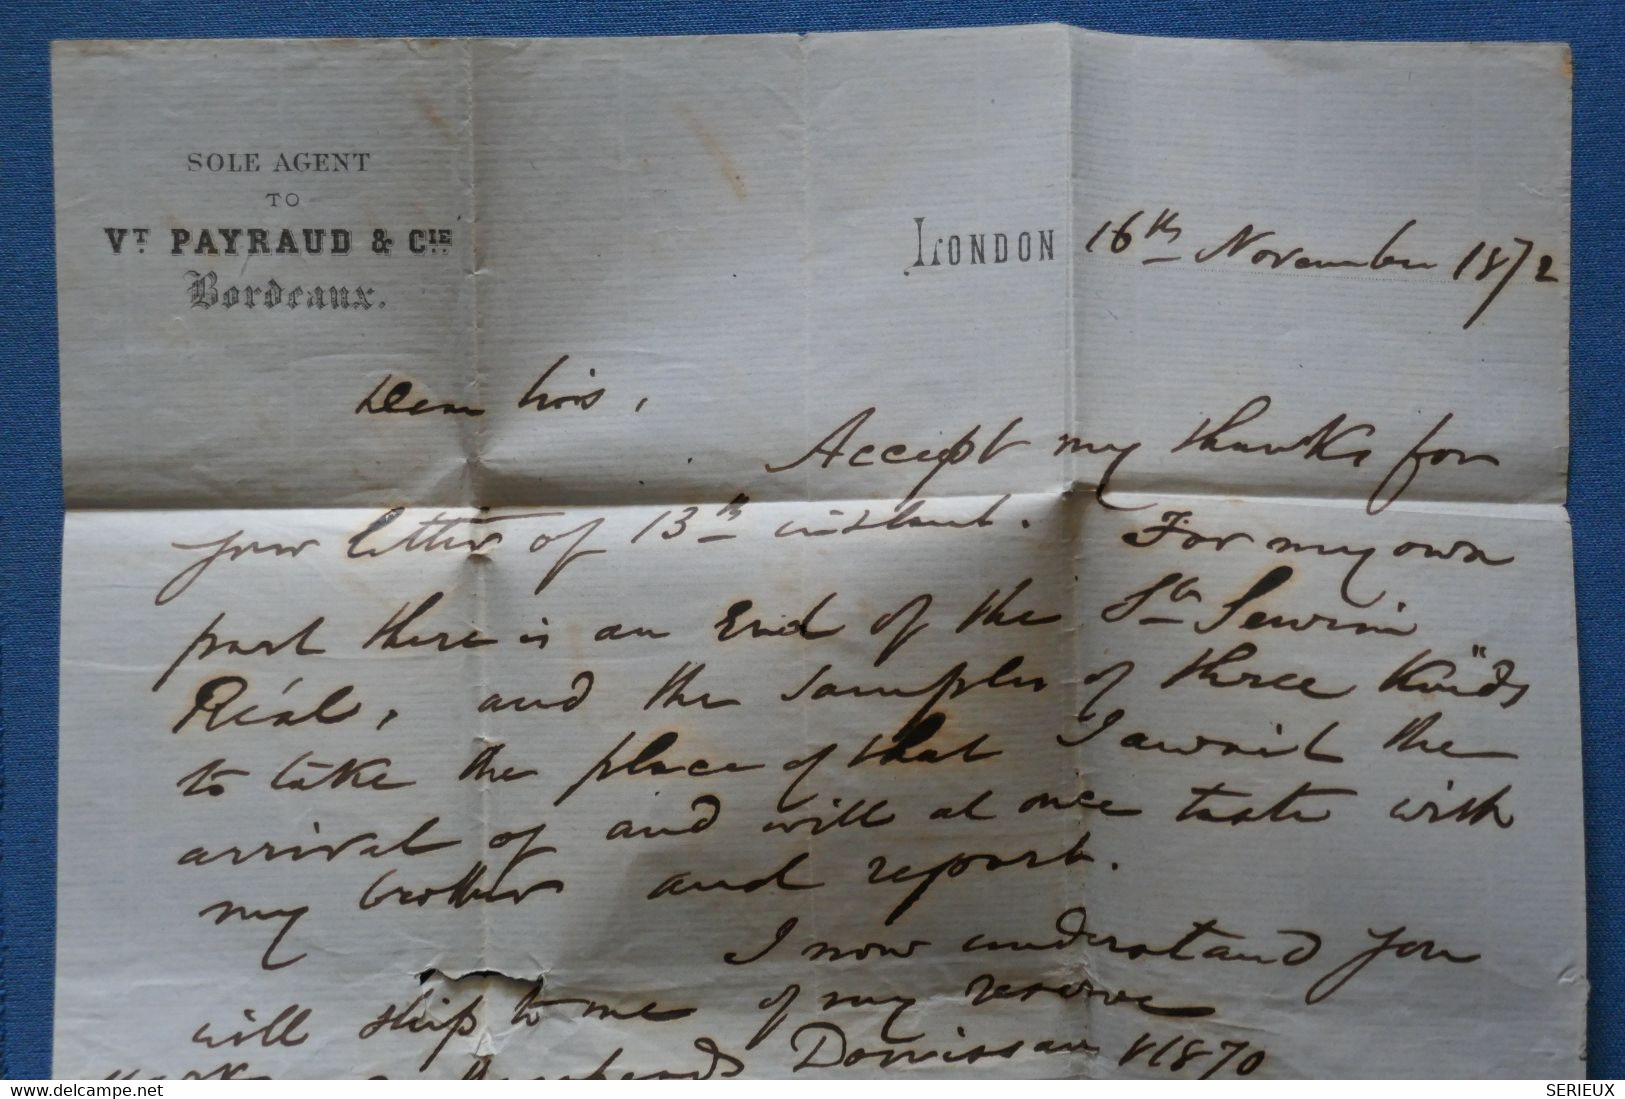 SOLE AGENT
TO
VT. PAYRAUD & CIE.
Bordeaux.
LONDON 16th November 1872
Dear Sirs,
Accept my thanks for
your letter of 13th instant. For my own
part there is an End of the St Seurin
Réal, and the samples of three Kinds
to take the place of that I await the
arrival of and will at once taste with
my brother and report.
I now understand you
will ship to me of my reserve
Hogsheads Donissan 1870
delcampe.net
SERIEUX